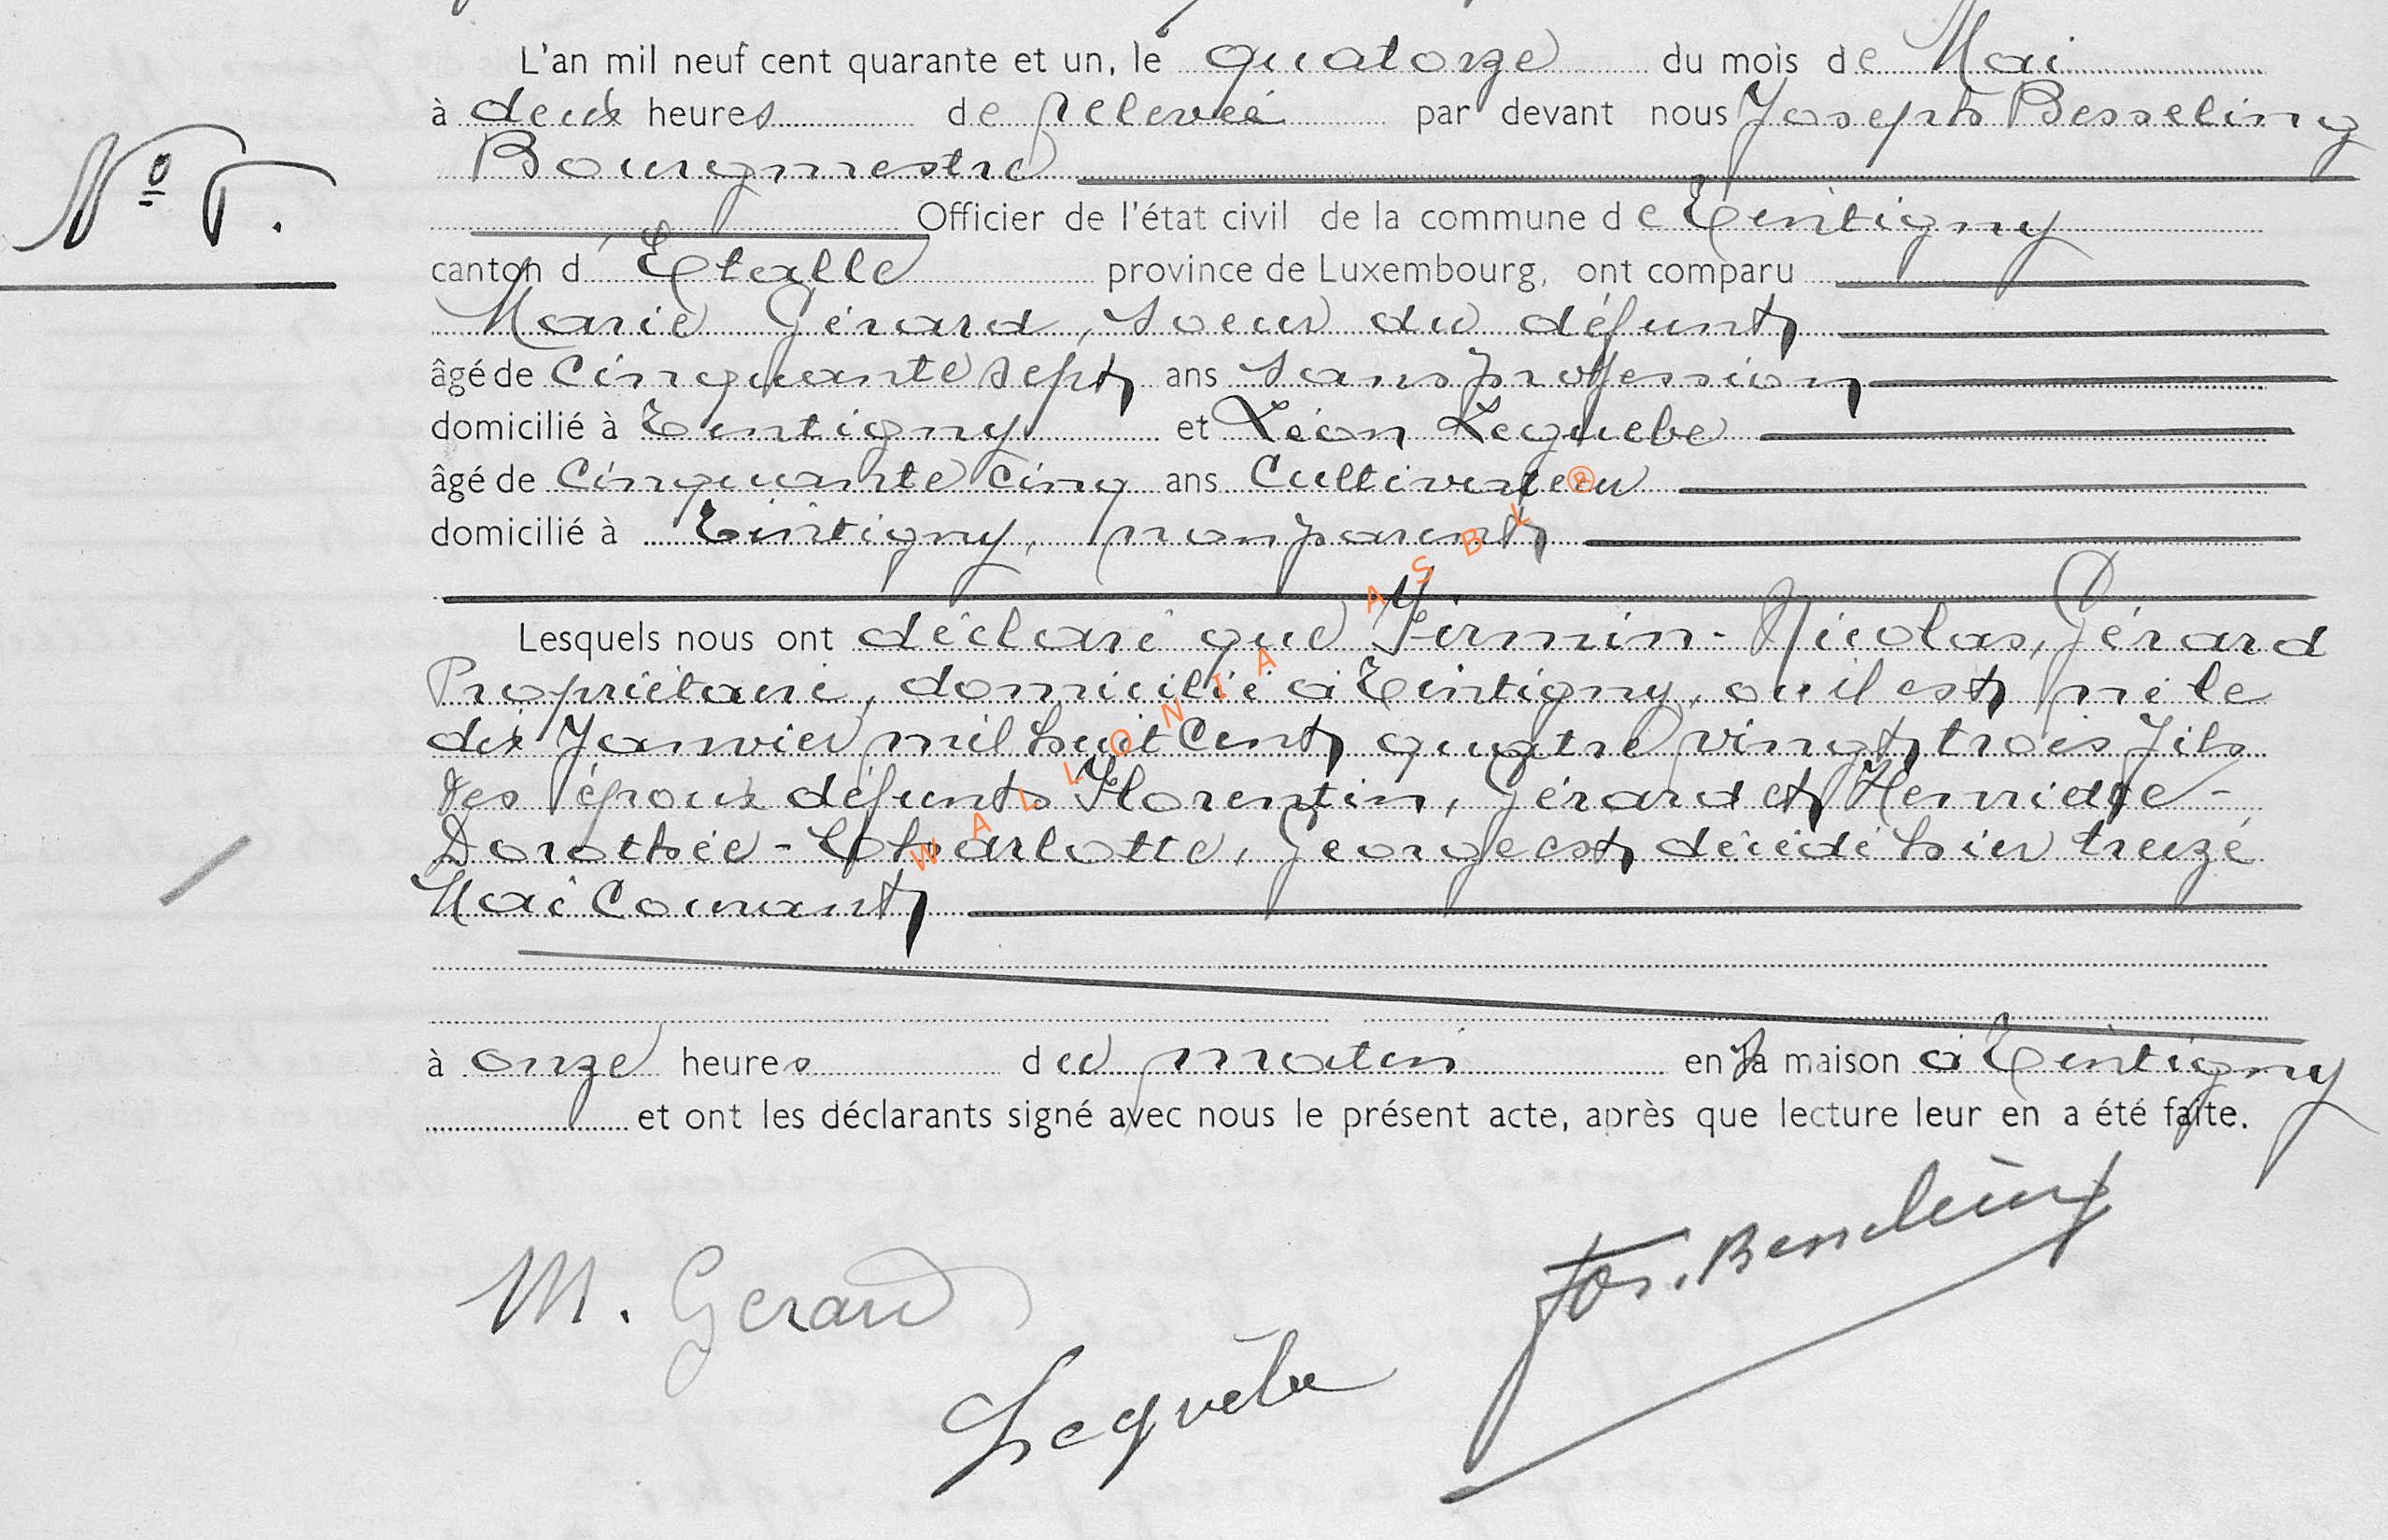 L'an mil neuf cent quarante et un, le quatorze du mois de Mai
à deux heures de relevée par devant nous Joseph Besseling
Bourgmestre
Nº 5.
Officier de l'état civil de la commune de Tintigny
canton d'Etalle province de Luxembourg, ont comparu
Marie Gérard, soeur du défunt
âgé de cinquante sept ans sans profession
domicilié à Tintigny et Léon Lequebe
âgé de cinquante cinq ans Cultivateur
domicilié à Tintigny, non parent
Lesquels nous ont déclaré que Firmin-Nicolas, Gérard
Propriétaire, domicilié à Tintigny, où il est né le
dix Janvier mil huit Cent quatre vingt trois fils
des époux défunts Florentin, Gérard et Henriette-
Dorothée-Charlotte, George est décédé hier treize
Mai Courant
à onze heures du matin en sa maison à Tintigny
et ont les déclarants signé avec nous le présent acte, après que lecture leur en a été faite.
M. Gerard
Jos. Besseling
Lequèbe
WALLONIA ASBL ®